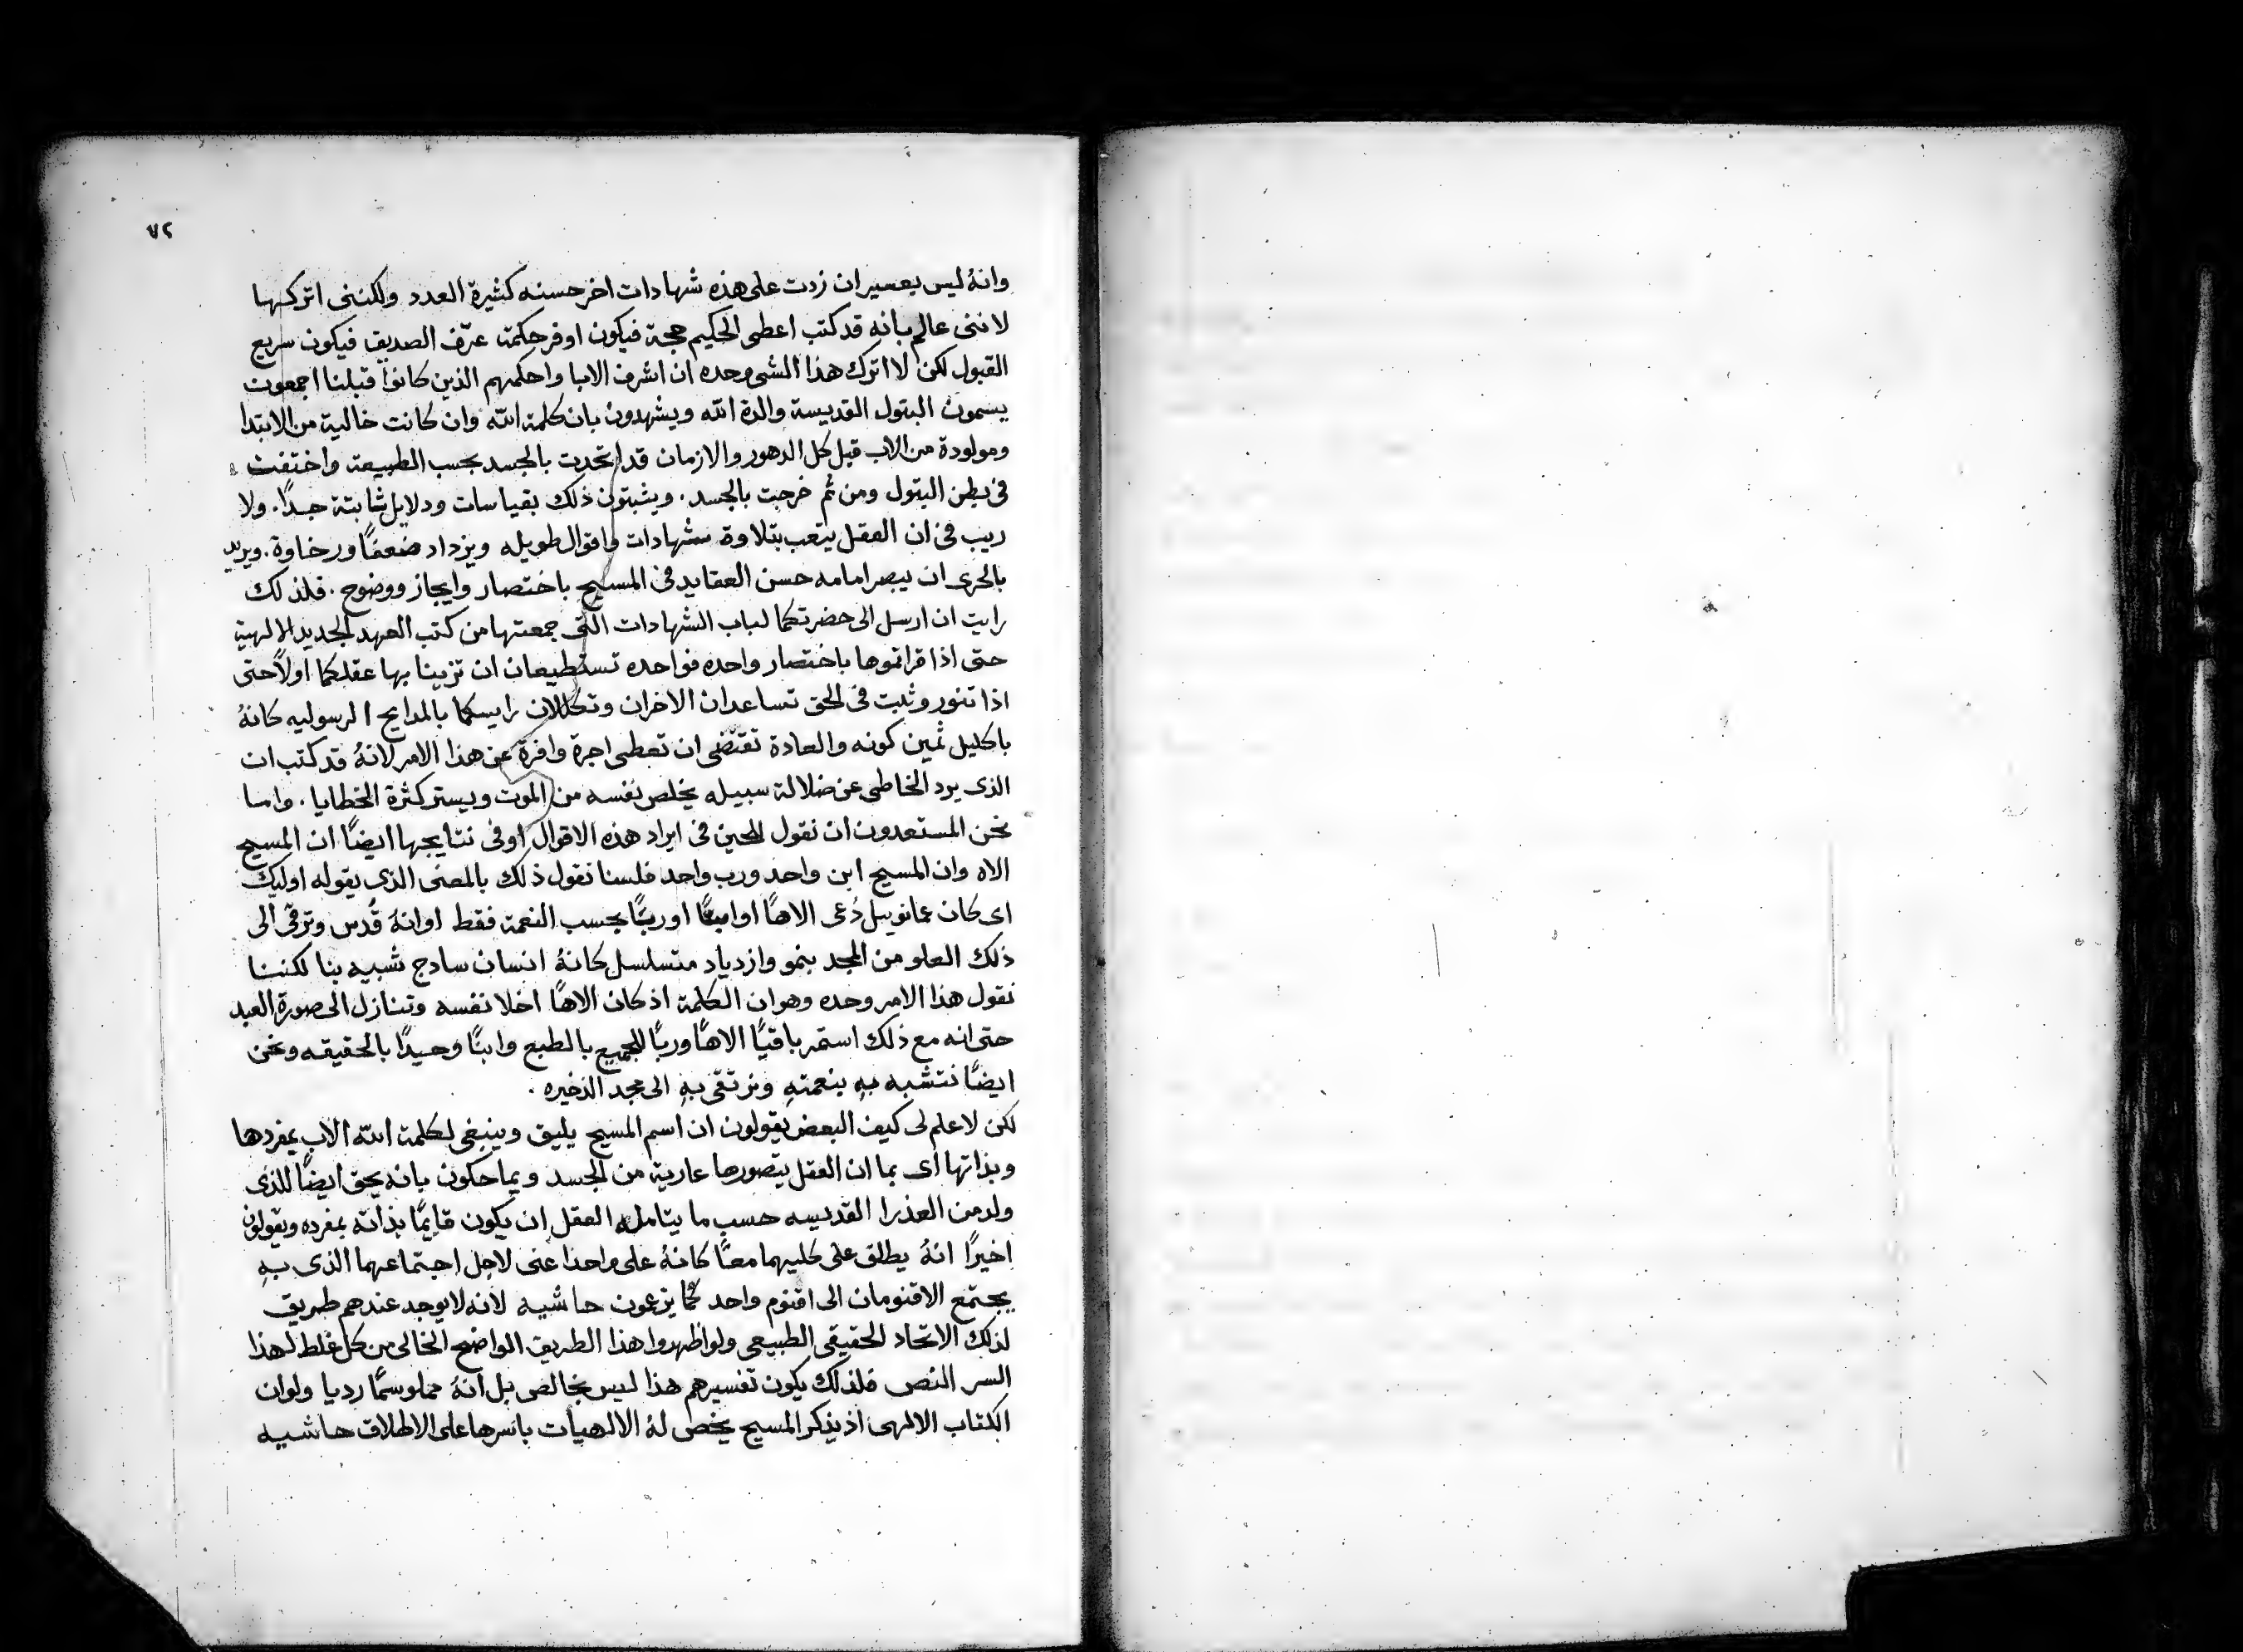 ٧٢
وانهُ ليس بعسير ان زدت على هذه شهادات اخر حسنه كثيرة العدد ولكننى اتركها
لاننى عالم بانه قد كتب اعطى الحكيم حجة فيكون اوفر حكمة عرّف الصديق فيكون سريع
القبول لكن لا اترك هذا الشى وحده ان اشرف الابا واحكمهم الذين كانوا قبلنا اجمعون
يسمون البتول القديسة والدة الله ويشهدون بان كلمة الله وان كانت خالية من الابتدا
ومولودة من الاب قبل كل الدهور والازمان قد اتحدت بالجسد بحسب الطبيعة واختفت
فى بطن البتول ومن ثم خرجت بالجسد. ويثبتون ذلك بقياسات ودلايل ثابتة جدًا. ولا
ريب فى ان العقل يتعب بتلاوة شهادات واقوال طويله ويزداد ضعفًا ورخاوة. ويريد
بالحرى ان يبصر امامه حسن العقايد فى المسيح باختصار وايجاز ووضوح. فلذلك
رايت ان ارسل الى حضرتكما لباب الشهادات التى جمعتها من كتب العهد الجديد الالهية
حتى اذا قراتموها باختصار واحده فواحده تستطيعان ان تزينا بها عقلكما اولًا حتى
اذا تنور وثبت فى الحق تساعدان الاخران وتكللان رايسكما بالمدايح الرسوليه كانهُ
باكليل ثمين كونه والعادة تقتضى ان تعطى اجرة وافرة عن هذا الامر لانهُ قد كتب ان
الذى يرد الخاطى عن ضلالة سبيله يخلص نفسه من الموت ويستر كثرة الخطايا. واما
نحن المستعدون ان نقول للحين فى ايراد هذه الاقوال او فى نتايجها ايضًا ان المسيح
الاه وان المسيح ابن واحد ورب واحد فلسنا نقول ذلك بالمعنى الذى يقوله اوليك
اى كان عمانوييل دُعى الاهًا او ابنًا او ربًا بحسب النعمة فقط او انهُ قُدس وترقى الى
ذلك العلو من المجد بنمو وازدياد متسلسل كانهُ انسان سادج شبيه بنا لكننا
نقول هذا الامر وحده وهو ان الكلمة اذ كان الاهًا اخلا نفسه وتنازل الى صورة العبد
حتى انه مع ذلك استمر باقيًا الاهًا وربًا للجميع بالطبع وابنًا وحيدًا بالحقيقه ونحن
ايضًا نتشبه بهِ بنعمتهِ ونرتقى بهِ الى مجد الذخيره.
لكن لا علم لى كيف البعض يقولون ان اسم المسيح يليق وينبغى لكلمة الله الاب بمفردها
وبذاتها اى بما ان العقل يتصورها عارية من الجسد ويماحكون بانه يحق ايضًا للذى
ولد من العذرا القديسه حسب ما يتامله العقل ان يكون قايمًا بذاته بمفرده ويقولون
اخيرًا انهُ يطلق على كليهما معًا كانهُ على واحدا عنى لاجل اجتماعهما الذى بهِ
يجتمع الاقنومان الى اقنوم واحد كما يزعون حاشيه لانه لا يوجد عندهم طريق
لذلك الاتحاد الحقيقى الطبيعى ولو اظهروا هذا الطريق الواضح الخالى من كل غلط لهذا
السر فلذلك يكون تفسيرهم هذا ليس بخالص بل انهُ مملو سمًا رديا ولو ان
الكتاب الالهى اذ يذكر المسيح يخص لهُ الالهيات باسرها على الاطلاق حاشيه